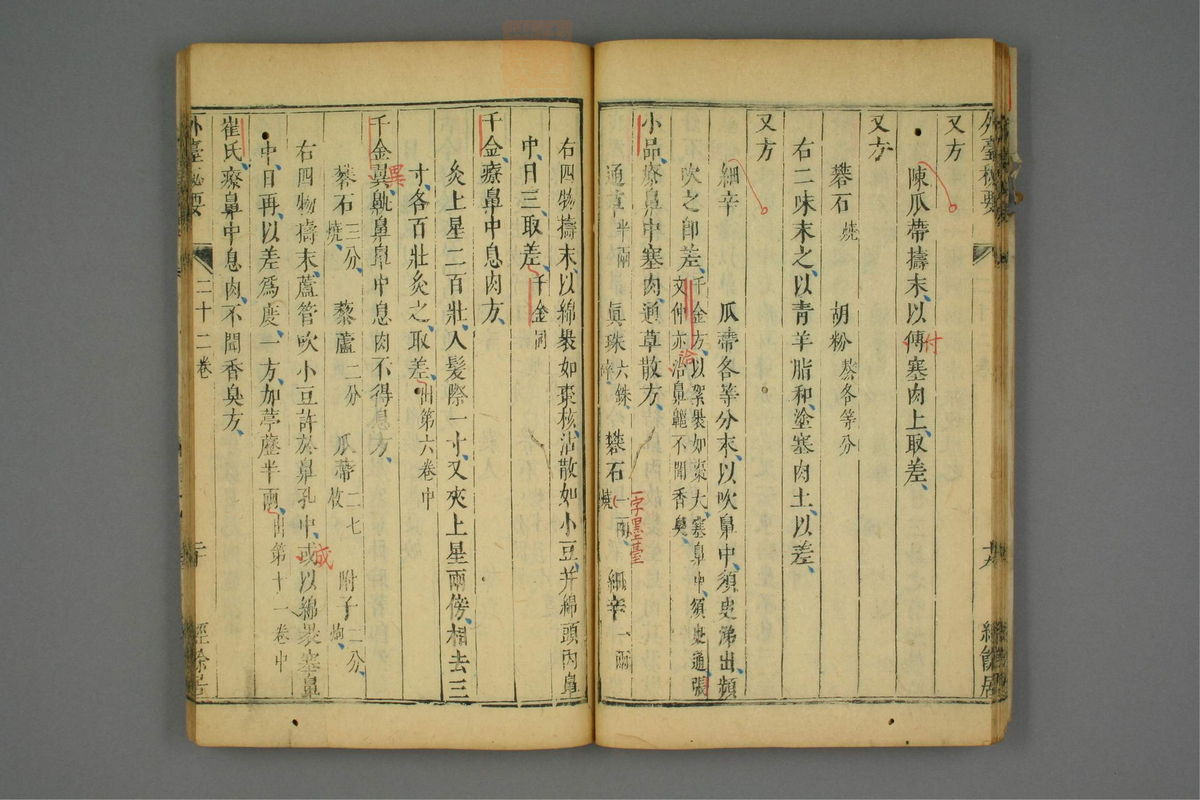 外臺秘要
十九
經餘居
又方
陳瓜蒂擣末以傅塞肉上取差
付
又方
礬石燒 胡粉熬各等分
右二味末之以青羊脂和塗塞肉上以差
又方
細辛 瓜蒂各等分末以吹鼻中須臾涕出頻
吹之即差千金方以絮裝如棗大塞鼻中須臾通張
文仲亦治鼻齆不聞香臭
洽
小品療鼻中塞肉通草散方
通草半兩 真珠六銖碎 礬石一兩燒 細辛一兩
一字墨臺
右四物擣末以綿裝如棗核沾散如小豆并綿頭內鼻
中日三取差千金同
千金療鼻中息肉方
灸上星二百壯入髮際一寸又夾上星兩傍相去三
寸各百壯灸之取差出第六卷中
千金翼鼽鼻鼻中息肉不得息方
異
礬石三分燒 藜蘆二分 瓜蒂二七枚 附子二分炮
右四物擣末蘆管吹小豆許於鼻孔中或以綿裹塞鼻
成
中日再以差爲度一方加葶藶半兩出第十一卷中
崔氏療鼻中息肉不聞香臭方
外臺秘要
二十二卷
二十
經餘居